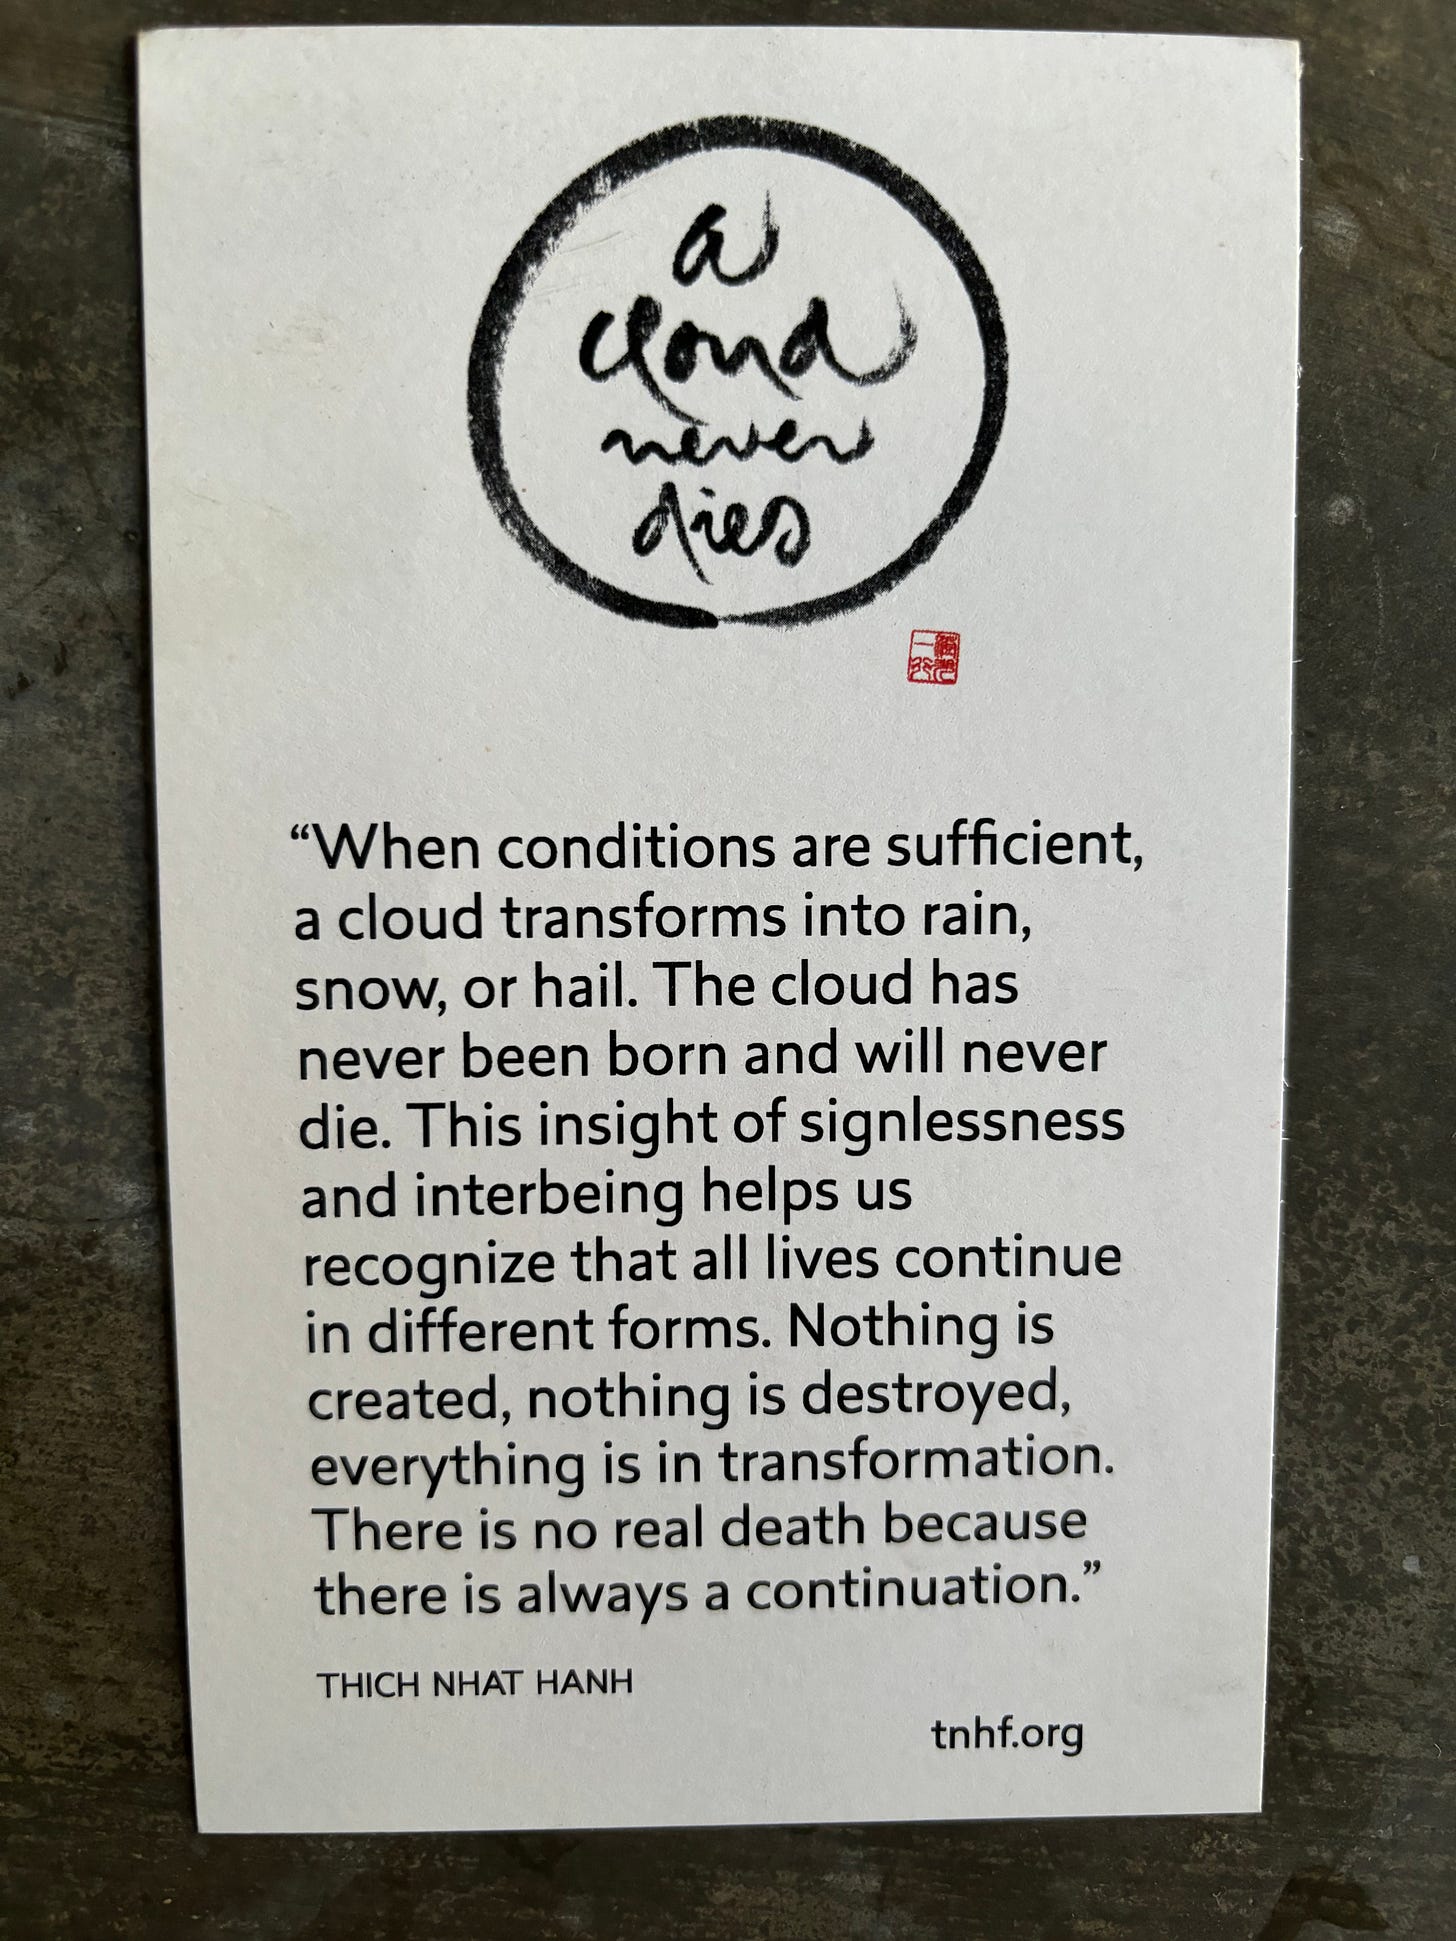 a
cloud
never
dies
“When conditions are sufficient,
a cloud transforms into rain,
snow, or hail. The cloud has
never been born and will never
die. This insight of signlessness
and interbeing helps us
recognize that all lives continue
in different forms. Nothing is
created, nothing is destroyed,
everything is in transformation.
There is no real death because
there is always a continuation.”
THICH NHAT HANH
tnhf.org